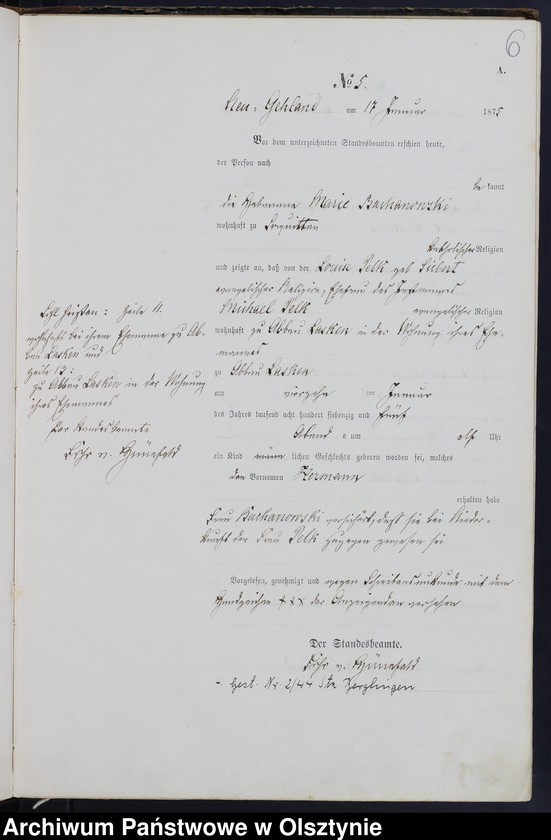 6
A.
No 5.
Neu-Gehland am 17 Januar 1875
Vor dem unterzeichneten Standesbeamten erschien heute,
der Person nach
bekannt
die Hebamme Marie Barkanowski
wohnhaft zu Sorquitten
katholischer Religion
und zeigte an, daß von der Louise Pelk geb Siebert
evangelischer Religion, Ehefrau des Instmannes
Michael Pelk evangelischer Religion
wohnhaft zu Abbau Lasken in der Wohnung ihres Ehe-
mannes
zu Abbau Lasken
am vierzehn ten Januar
des Jahres tausend acht hundert siebenzig und fünf
Abend s um elf Uhr
ein Kind männ lichen Geschlechts geboren worden sei, welches
den Vornamen Hermann
erhalten habe
Frau Barkanowski versichert, daß sie bei Nieder-
kunft der Frau Pelk zugegen gewesen sei
Vorgelesen, genehmigt und wegen Schreibensunkunde mit dem
Handzeichen +++ der Anzeigenden versehen
Der Standesbeamte.
Frhr v.
- Gest. Nr 2/44 Sta
Zeile 11.
wohnhaft bei ihrem Ehemanne zu Ab-
bau Lasken und
Zeile 13:
zu Abbau Lasken in der Wohnung
ihres Ehemannes
Der Standesbeamte
Frhr v.
Archiwum Państwowe w Olsztynie